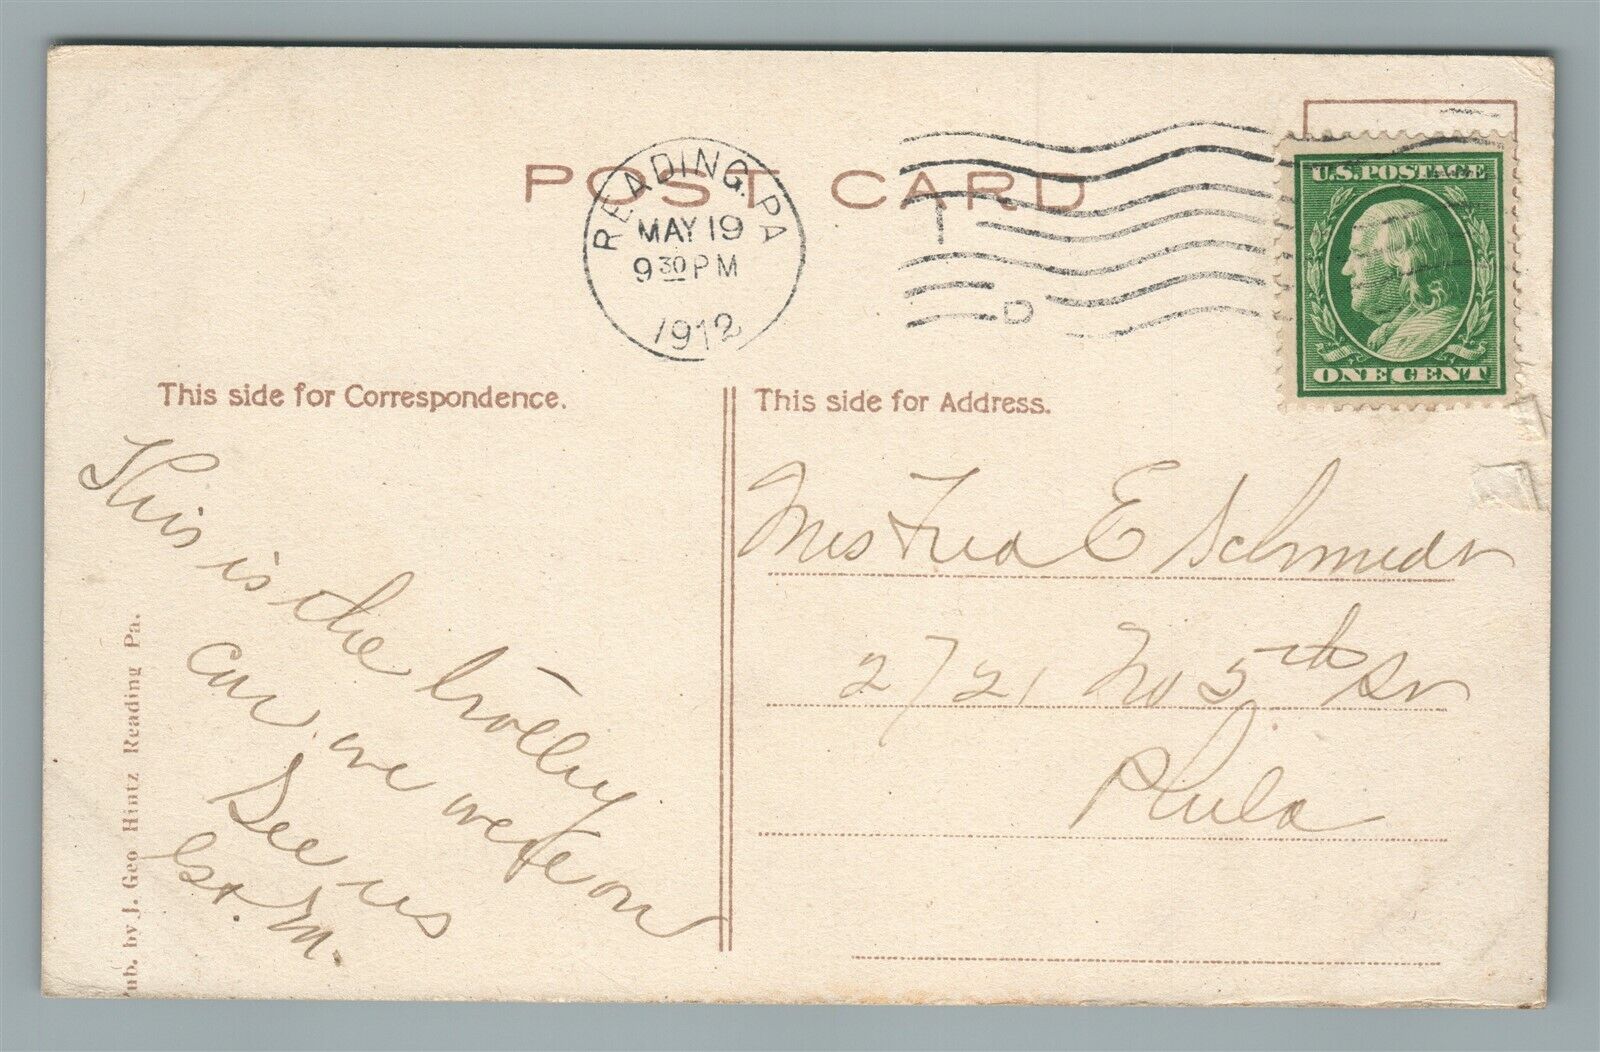 POST CARD
READING, PA.
MAY 19
9 30 PM
1912
D
U.S. POSTAGE
ONE CENT
This side for Correspondence.
This side for Address.
This is the trolley
car we were on
See us
G. M.
Mrs Fred E Schmidt
2721 No 5th St
Phila
ub. by J. Geo Hintz Reading Pa.